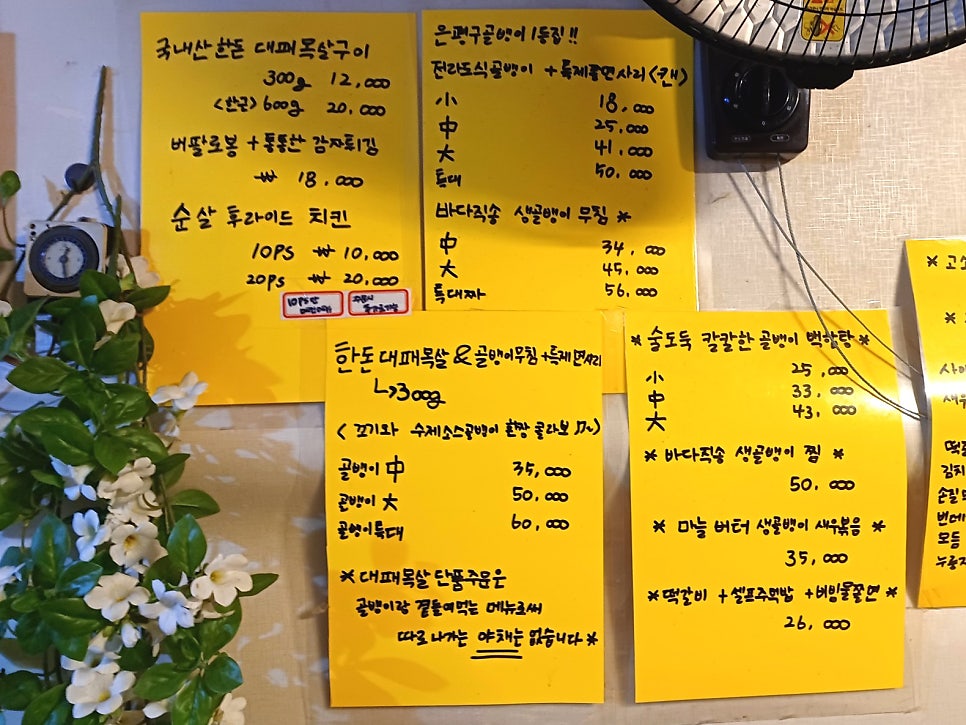 국내산 한돈 대패목살구이
300g 12,000
<한근> 600g 20,000
버팔로봉 + 통통한 감자튀김
₩ 18,000
순살 후라이드 치킨
10PS ₩ 10,000
20PS ₩ 20,000
10PS만
은평구골뱅이 1등집!!
전라도식골뱅이 + 특제쫄면사리 <캔>
小 18,000
中 25,000
大 41,000
특대 50,000
바다직송 생골뱅이 무침 *
中 34,000
大 45,000
특대짜 56,000
한돈 대패목살 & 골뱅이무침 + 특제면사리
↳300g
< 고기와 수제소스골뱅이 환장 콜라보
골뱅이 中 35,000
골뱅이 大 50,000
골뱅이특대 60,000
* 대패목살 단품주문은
골뱅이랑 곁들여먹는 메뉴로써
따로 나가는 야채는 없습니다 *
* 술도둑 칼칼한 골뱅이 백합탕 *
小 25,000
中 33,000
大 43,000
* 바다직송 생골뱅이 찜 *
50,000
* 마늘 버터 생골뱅이 새우볶음 *
35,000
* 떡갈비 + 셀프주먹밥 + 비빔물쫄면 *
26,000
* 고소
*
사이
새우
떡갈
김치
손질
번데
모듬
누룽지